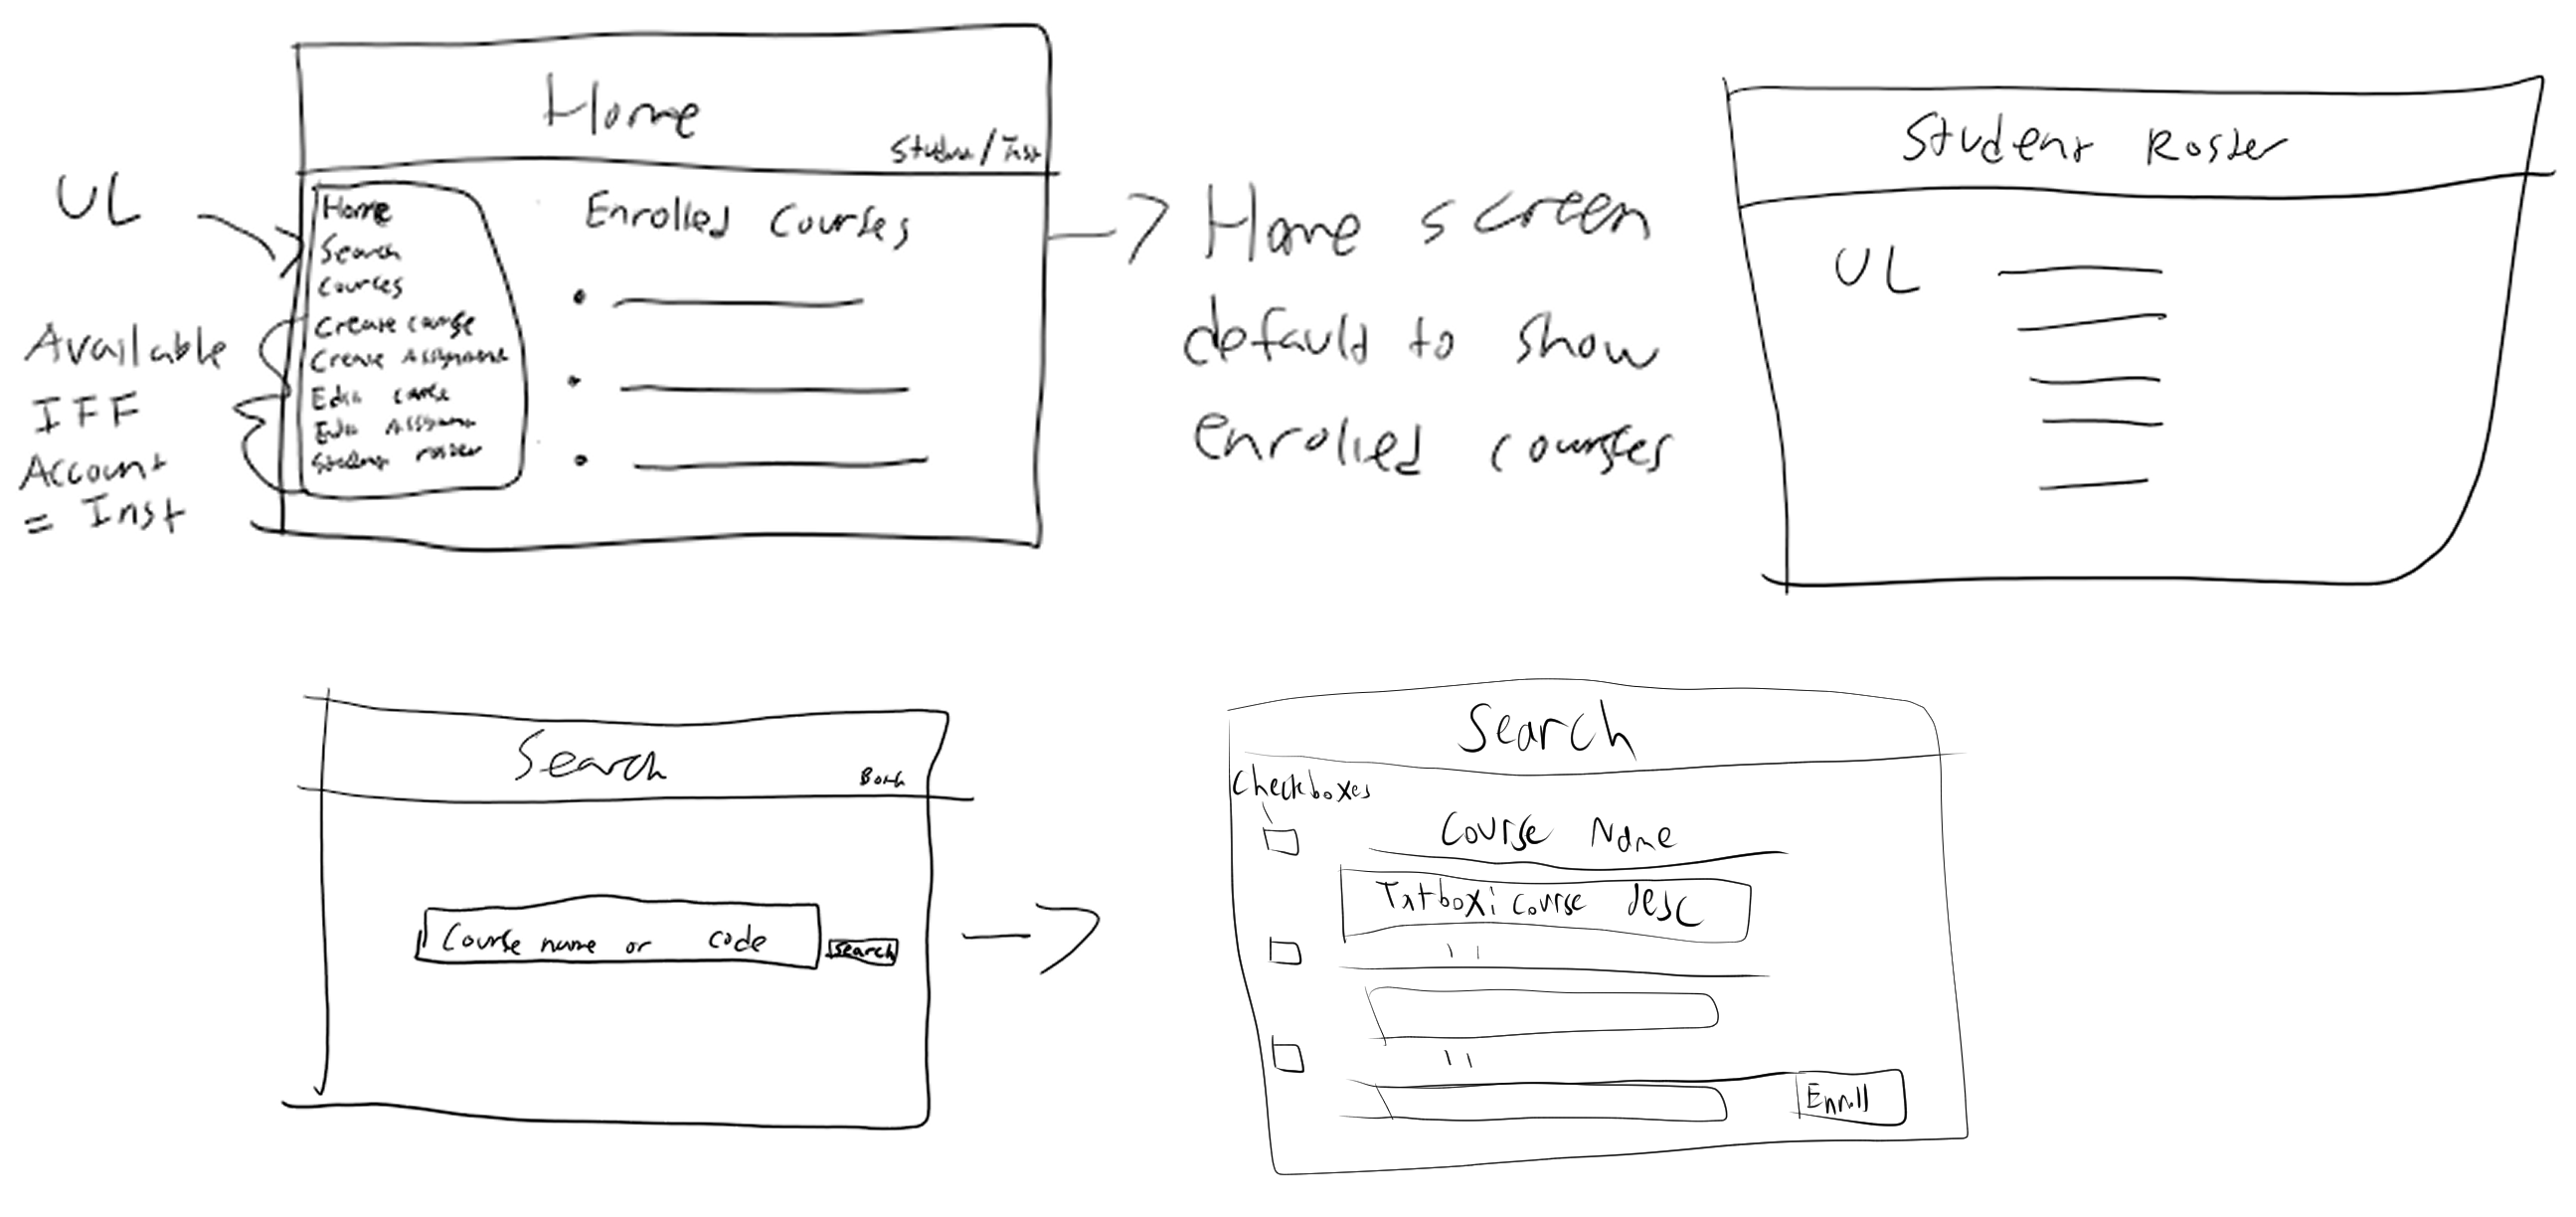 Home
Student/Inst
UL
Home
Search
Courses
Create course
Create Assignment
Edit course
Edit Assignment
Student roster
Available
IFF
Account
= Inst
Enrolled Courses
Home screen
default to show
enrolled courses
Student Roster
UL
Search
Both
Course name or code
Search
Search
Checkboxes
Course Name
Txtbox: course desc
" "
" "
Enroll